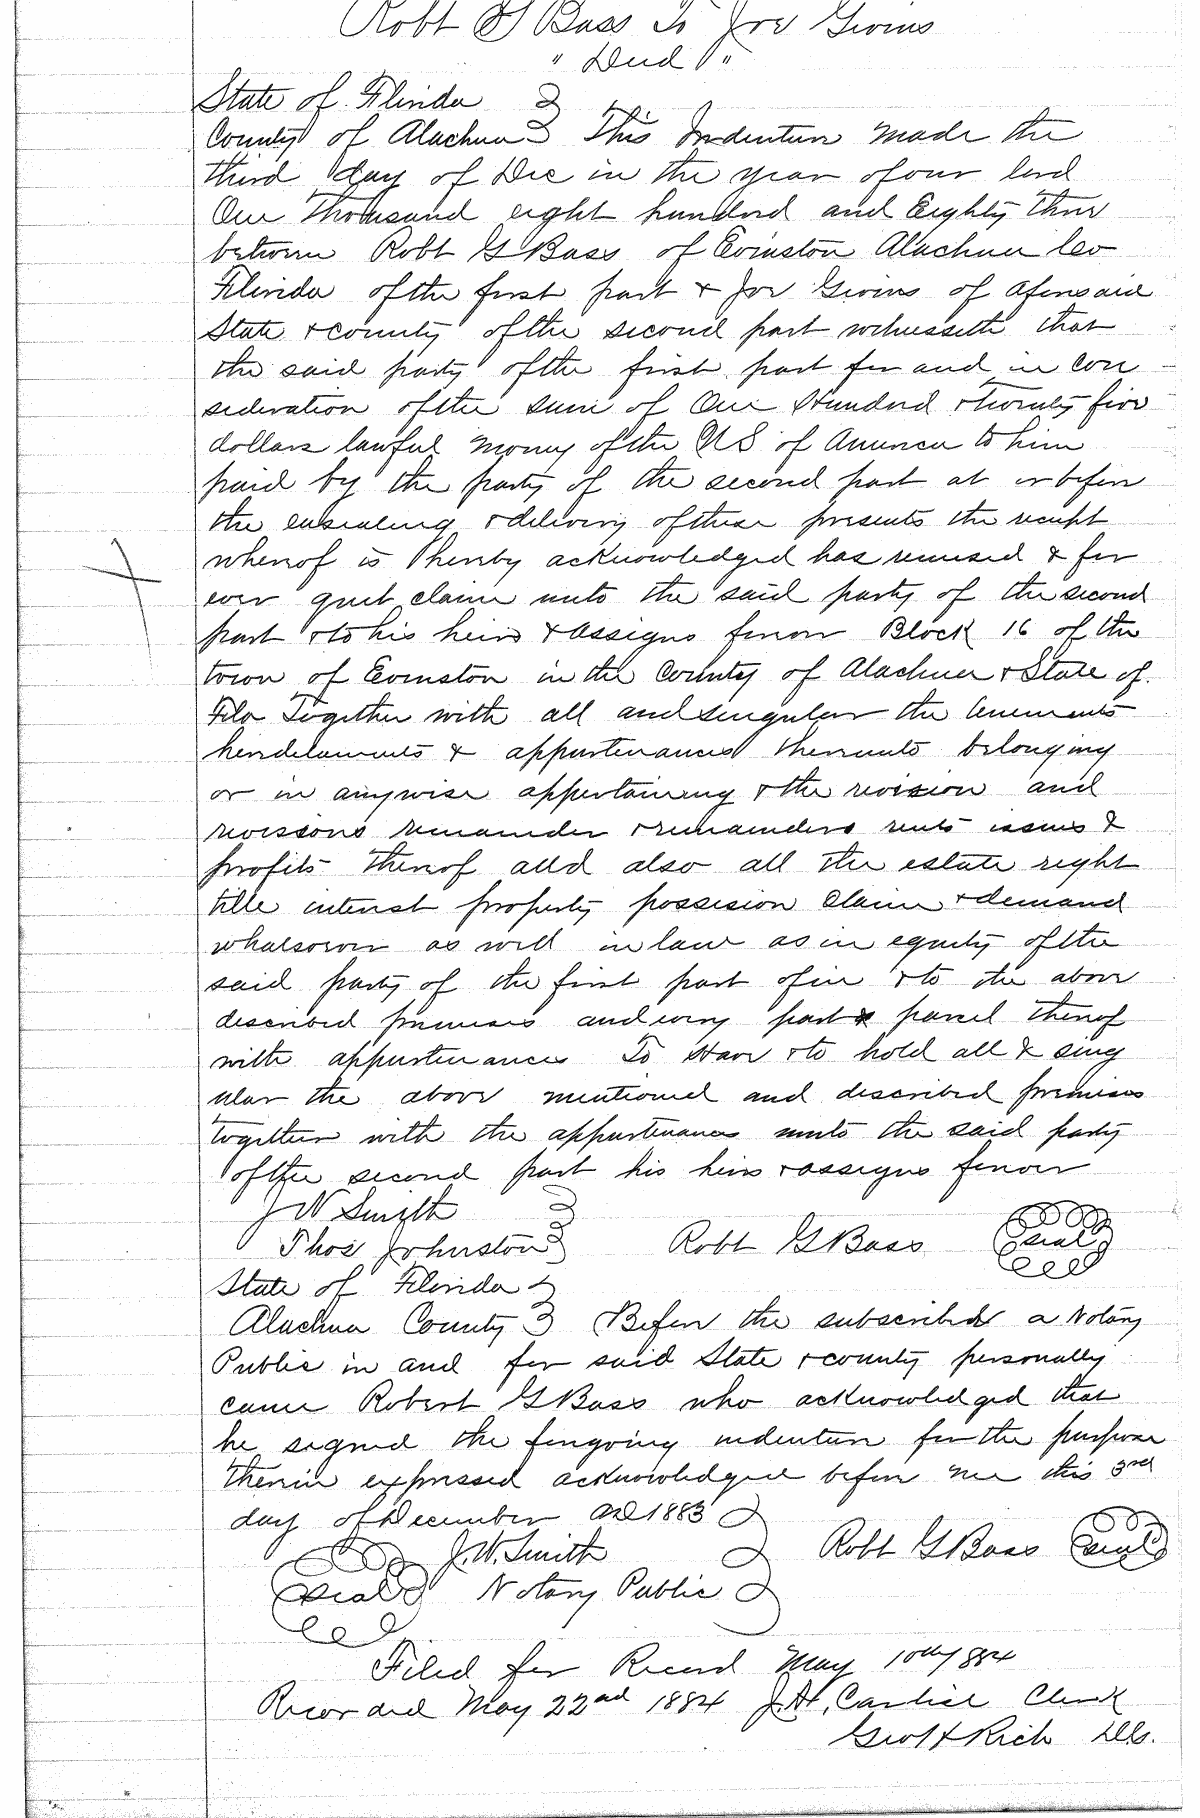 Robt G Bass To Joe Givins
" Deed "
State of Florida
County of Alachua This Indenture made the
third day of Dec in the year of our lord
One thousand eight hundred and Eighty three
between Robt G Bass of Evinston Alachua Co
Florida of the first part & Joe Givins of aforesaid
State & county of the second part witnesseth that
the said party of the first part for and in con
sideration of the sum of One Hundred & twenty five
dollars lawful money of the US of America to him
paid by the party of the second part at or before
the ensealing & delivery of these presents the receipt
whereof is hereby acknowledged has remised & for
ever quit claim unto the said party of the second
part & to his heirs & assigns forever Block 16 of the
town of Evinston in the County of Alachua & State of
Fla Together with all and singular the tenements
heridetaments & appurtenances thereunto belonging
or in anywise appertaining & the revision and
revissons remainder & remainders rents issues &
profits thereof add also all the estate right
title interest property possession claim & demand
whatsoever as well in law as in equity of the
said party of the first part of in & to the above
described premises and every part & parcel thereof
with appurtenances To Have & to hold all & sing
ular the above mentioned and described premises
together with the appurtenances unto the said party
of the second part his heirs & assigns forever
J W Smith
Thos Johnston Robt G Bass Seal
State of Florida
Alachua County Before the subscriber a Notary
Public in and for said State & county personally
came Robert G Bass who acknowledged that
he signed the foregoing indenture for the purpose
therein expressed acknowledged before me this 3rd
day of December AD 1883
J. W. Smith Robt G Bass Seal
Seal Notary Public
Filed for Record May 10th 1884
Recorded May 22nd 1884 J. H. Carlisle Clerk
Geo H Rich D.C.